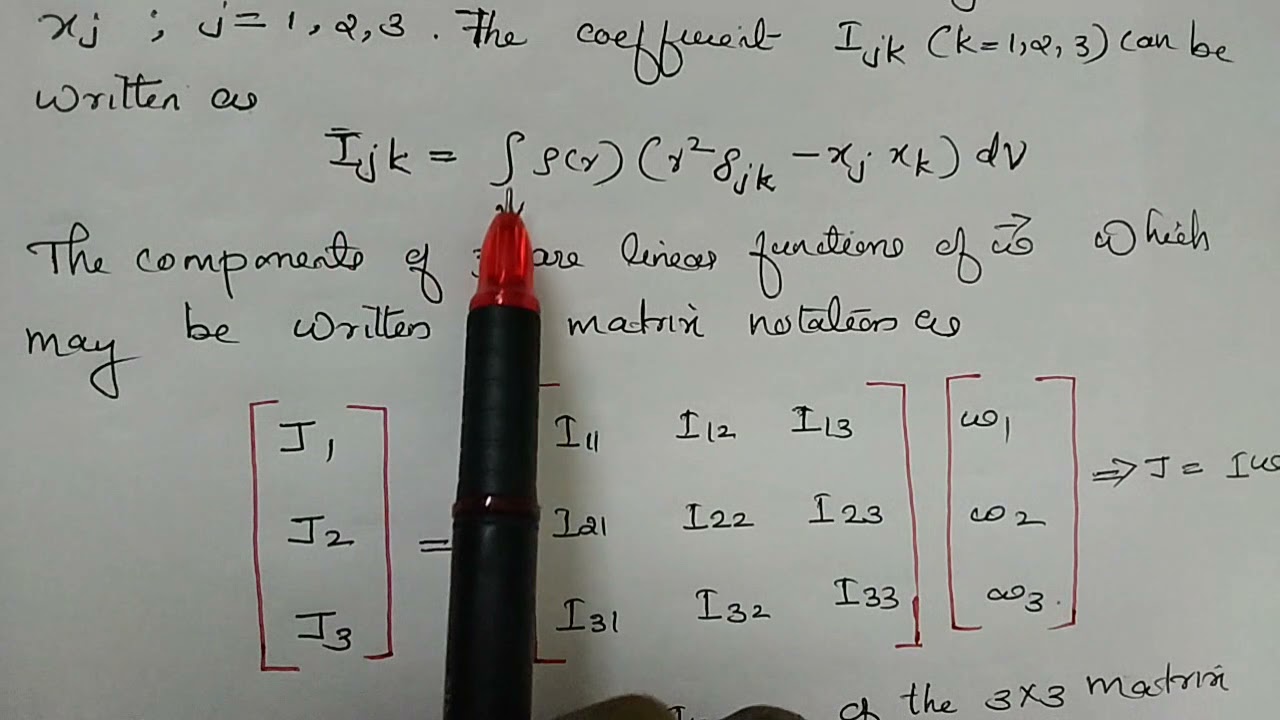 xj ; j = 1, 2, 3 . The coefficient I_jk (k=1,2,3) can be
written as
I_jk = ∫_V ρ(r) (r² δ_jk − x_j x_k) dV
The components of are linear functions of ω⃗ which
may be written matrix notation as
[J₁ J₂ J₃] = [I₁₁ I₁₂ I₁₃; I₂₁ I₂₂ I₂₃; I₃₁ I₃₂ I₃₃] [ω₁ ω₂ ω₃] ⇒ J = Iω
of the 3×3 matrix